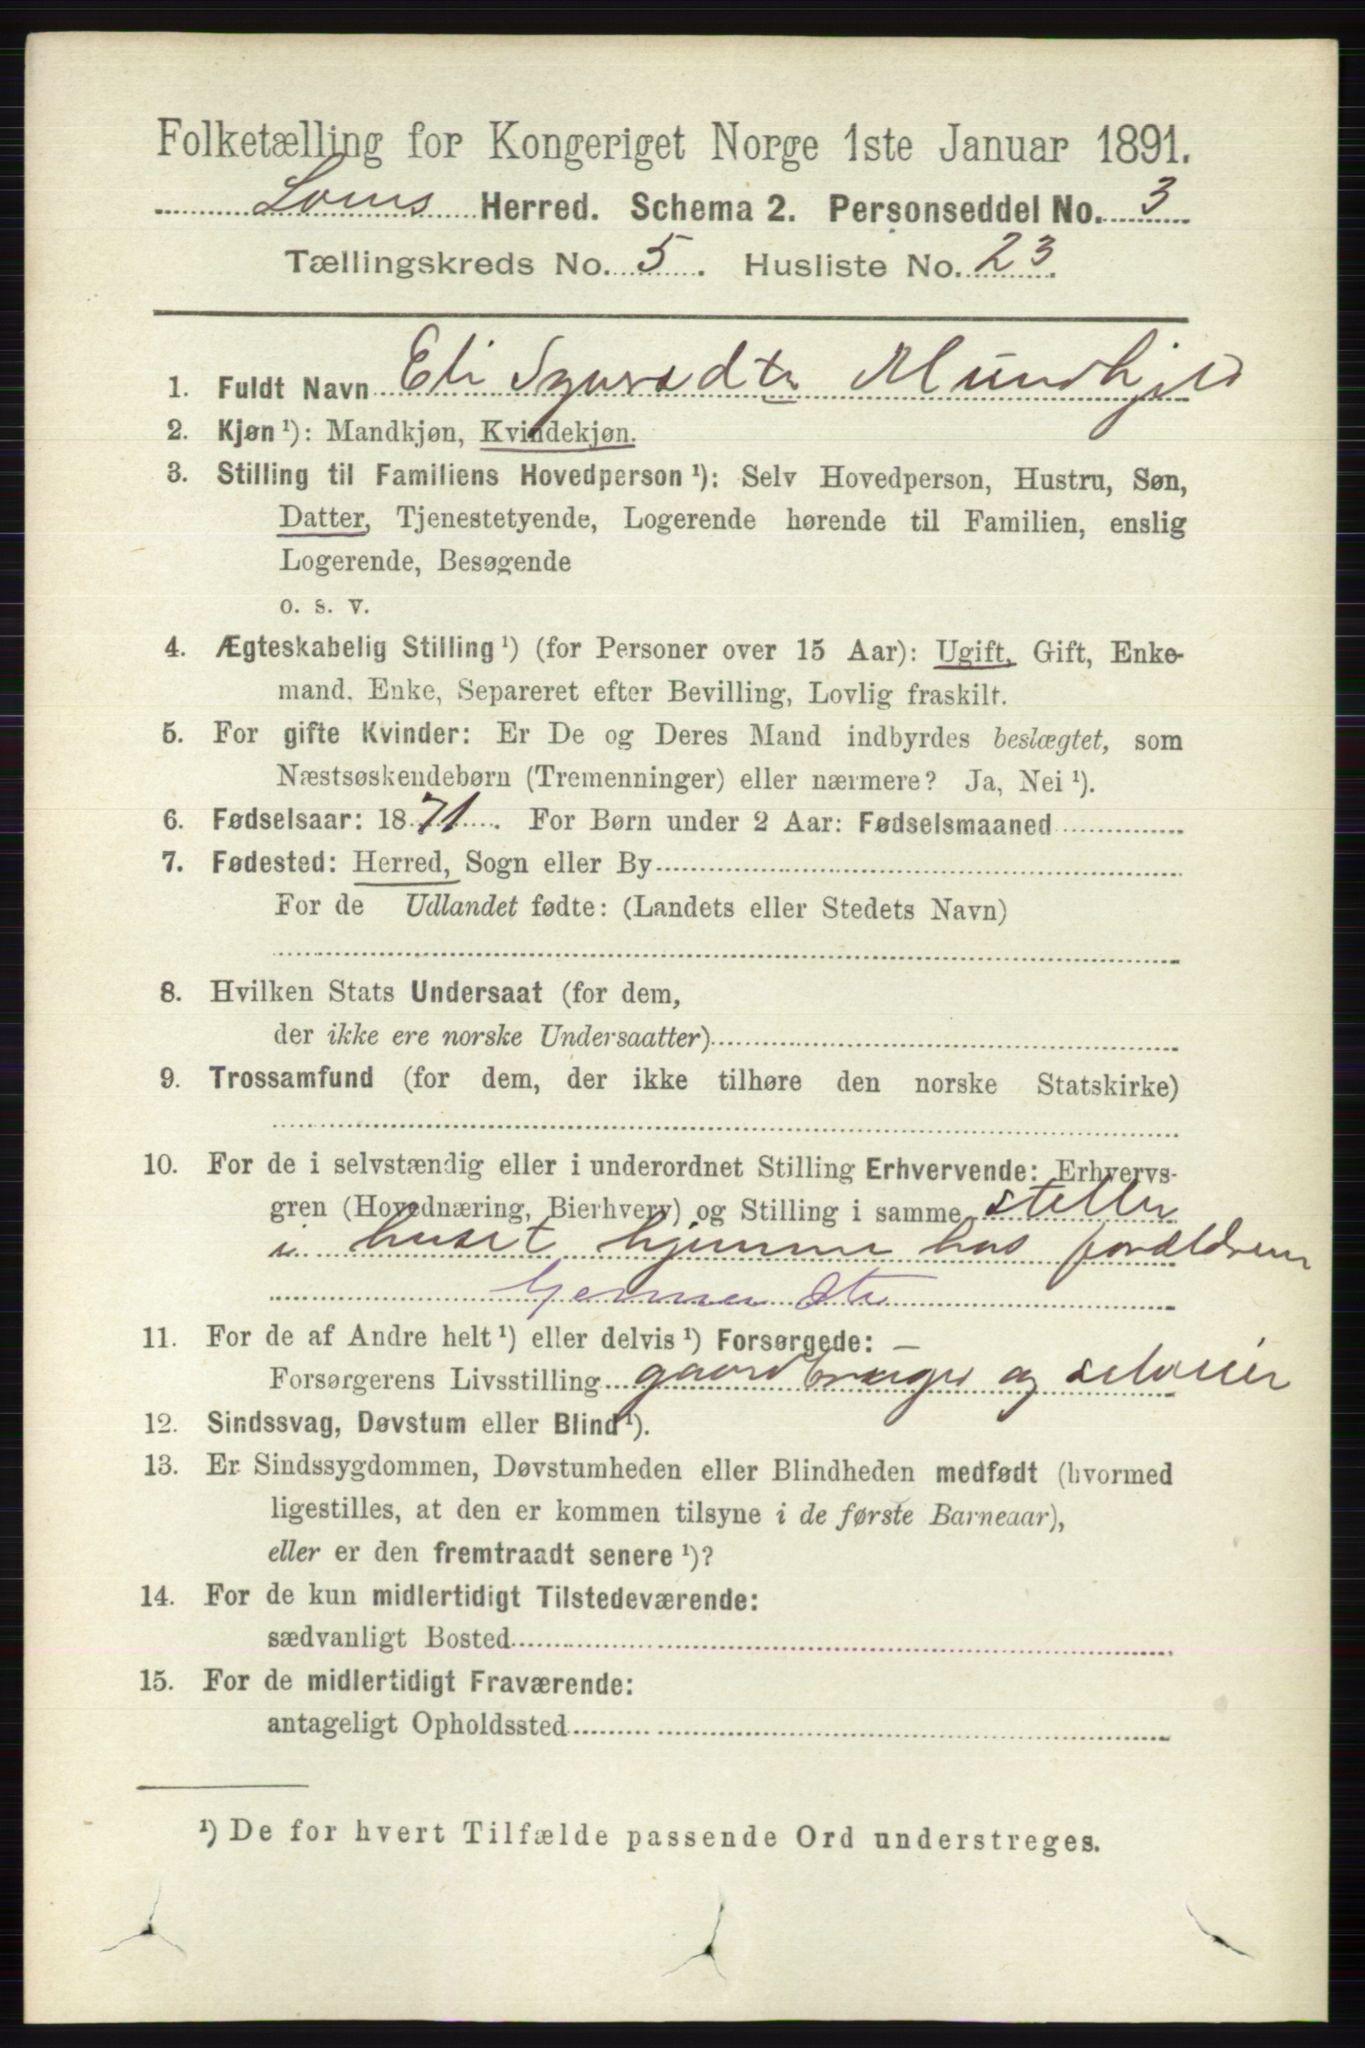 Folketælling for Kongeriget Norge 1ste Januar 1891.
Loms Herred. Schema 2. Personseddel No. 3
Tællingskreds No. 5. Husliste No. 23.
1. Fuldt Navn Eli Syversdtr Mundhjeld
2. Kjøn ¹): Mandkjøn, Kvindekjøn.
3. Stilling til Familiens Hovedperson ¹): Selv Hovedperson, Hustru, Søn,
Datter, Tjenestetyende, Logerende hørende til Familien, enslig
Logerende, Besøgende
o. s. v.
4. Ægteskabelig Stilling ¹) (for Personer over 15 Aar): Ugift, Gift, Enke-
mand, Enke, Separeret efter Bevilling, Lovlig fraskilt.
5. For gifte Kvinder: Er De og Deres Mand indbyrdes beslægtet, som
Næstsøskendebørn (Tremenninger) eller nærmere? Ja, Nei ¹).
6. Fødselsaar: 1871. For Børn under 2 Aar: Fødselsmaaned
7. Fødested: Herred, Sogn eller By
For de Udlandet fødte: (Landets eller Stedets Navn)
8. Hvilken Stats Undersaat (for dem,
der ikke ere norske Undersaatter)
9. Trossamfund (for dem, der ikke tilhøre den norske Statskirke)
10. For de i selvstændig eller i underordnet Stilling Erhvervende: Erhvervs-
gren (Hovednæring, Bierhverv) og Stilling i samme steller
i huset hjemme hos forældrene
11. For de af Andre helt ¹) eller delvis ¹) Forsørgede: –
Forsørgerens Livsstilling gaardbruger og selveier
12. Sindssvag, Døvstum eller Blind ¹).
13. Er Sindssygdommen, Døvstumheden eller Blindheden medfødt (hvormed
ligestilles, at den er kommen tilsyne i de første Barneaar),
eller er den fremtraadt senere ¹)?
14. For de kun midlertidigt Tilstedeværende:
sædvanligt Bosted
15. For de midlertidigt Fraværende:
antageligt Opholdssted
¹) De for hvert Tilfælde passende Ord understreges.